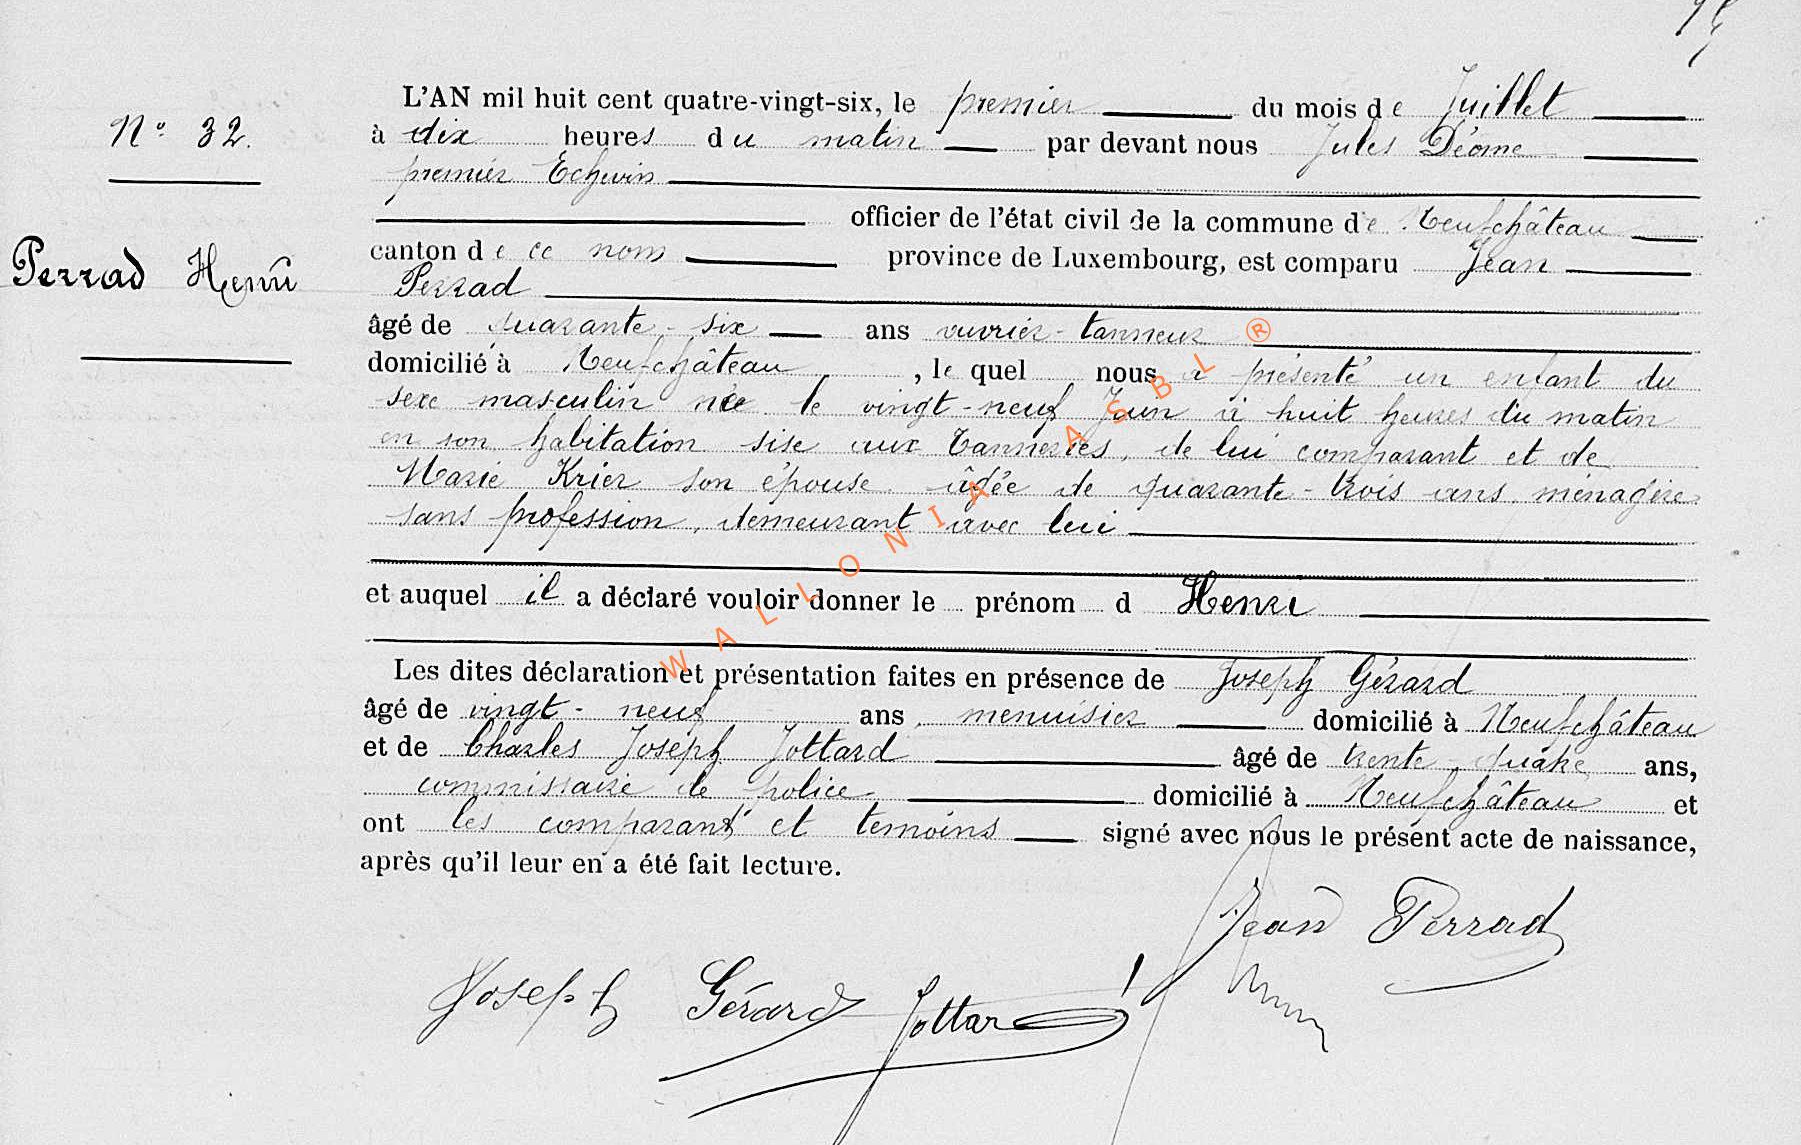 N° 32.
Perrad Henri
L'AN mil huit cent quatre-vingt-six, le premier du mois de Juillet
à dix heures du matin par devant nous Jules Déome
premier Echevin
officier de l'état civil de la commune de Neufchâteau
canton de ce nom province de Luxembourg, est comparu Jean
Perrad
âgé de quarante-six ans ouvrier-tanneur
domicilié à Neufchâteau, le quel nous a présenté un enfant du
sexe masculin né le vingt-neuf Juin à huit heures du matin
en son habitation sise aux Tanneries, de lui comparant et de
Marie Krier son épouse âgée de quarante-trois ans ménagère
sans profession, demeurant avec lui
et auquel il a déclaré vouloir donner le prénom d Henri
Les dites déclaration et présentation faites en présence de Joseph Gérard
âgé de vingt-neuf ans, menuisier domicilié à Neufchâteau
et de Charles Joseph Jottard âgé de trente quatre ans,
commissaire de police domicilié à Neufchâteau et
ont les comparant et temoins signé avec nous le présent acte de naissance,
après qu'il leur en a été fait lecture.
Jean Perrad
Joseph Gérard Jottard
WALLONIA ASBL ®